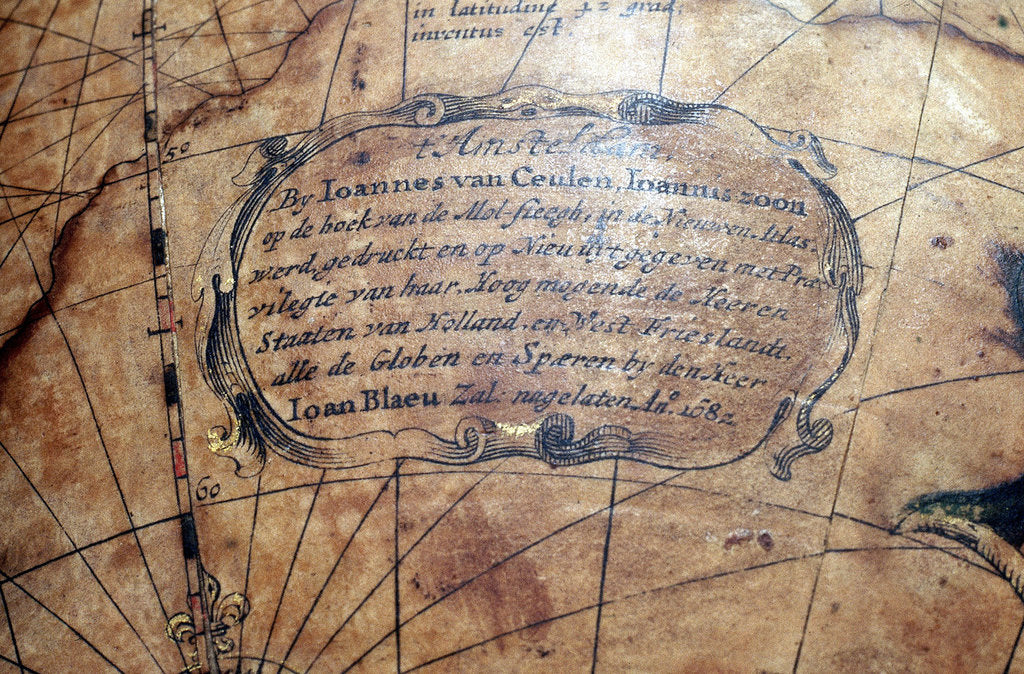 in latitudine 42 grad.
inventus est.
50
t'Amsteldam,
By Ioannes van Ceulen, Ioannis zoon
op de hoek van de Mol-steegh, in de Nieuwen Hlas:
werd gedruckt en op Nieu uitgegeven met Præ-
vilegie van haar. Hoog mogende de Heeren
Staaten van Holland. en West Frieslandt.
alle de Globen en Spæren by den Heer
Ioan Blaeu Zal: nagelaten. Ao. 1682
60